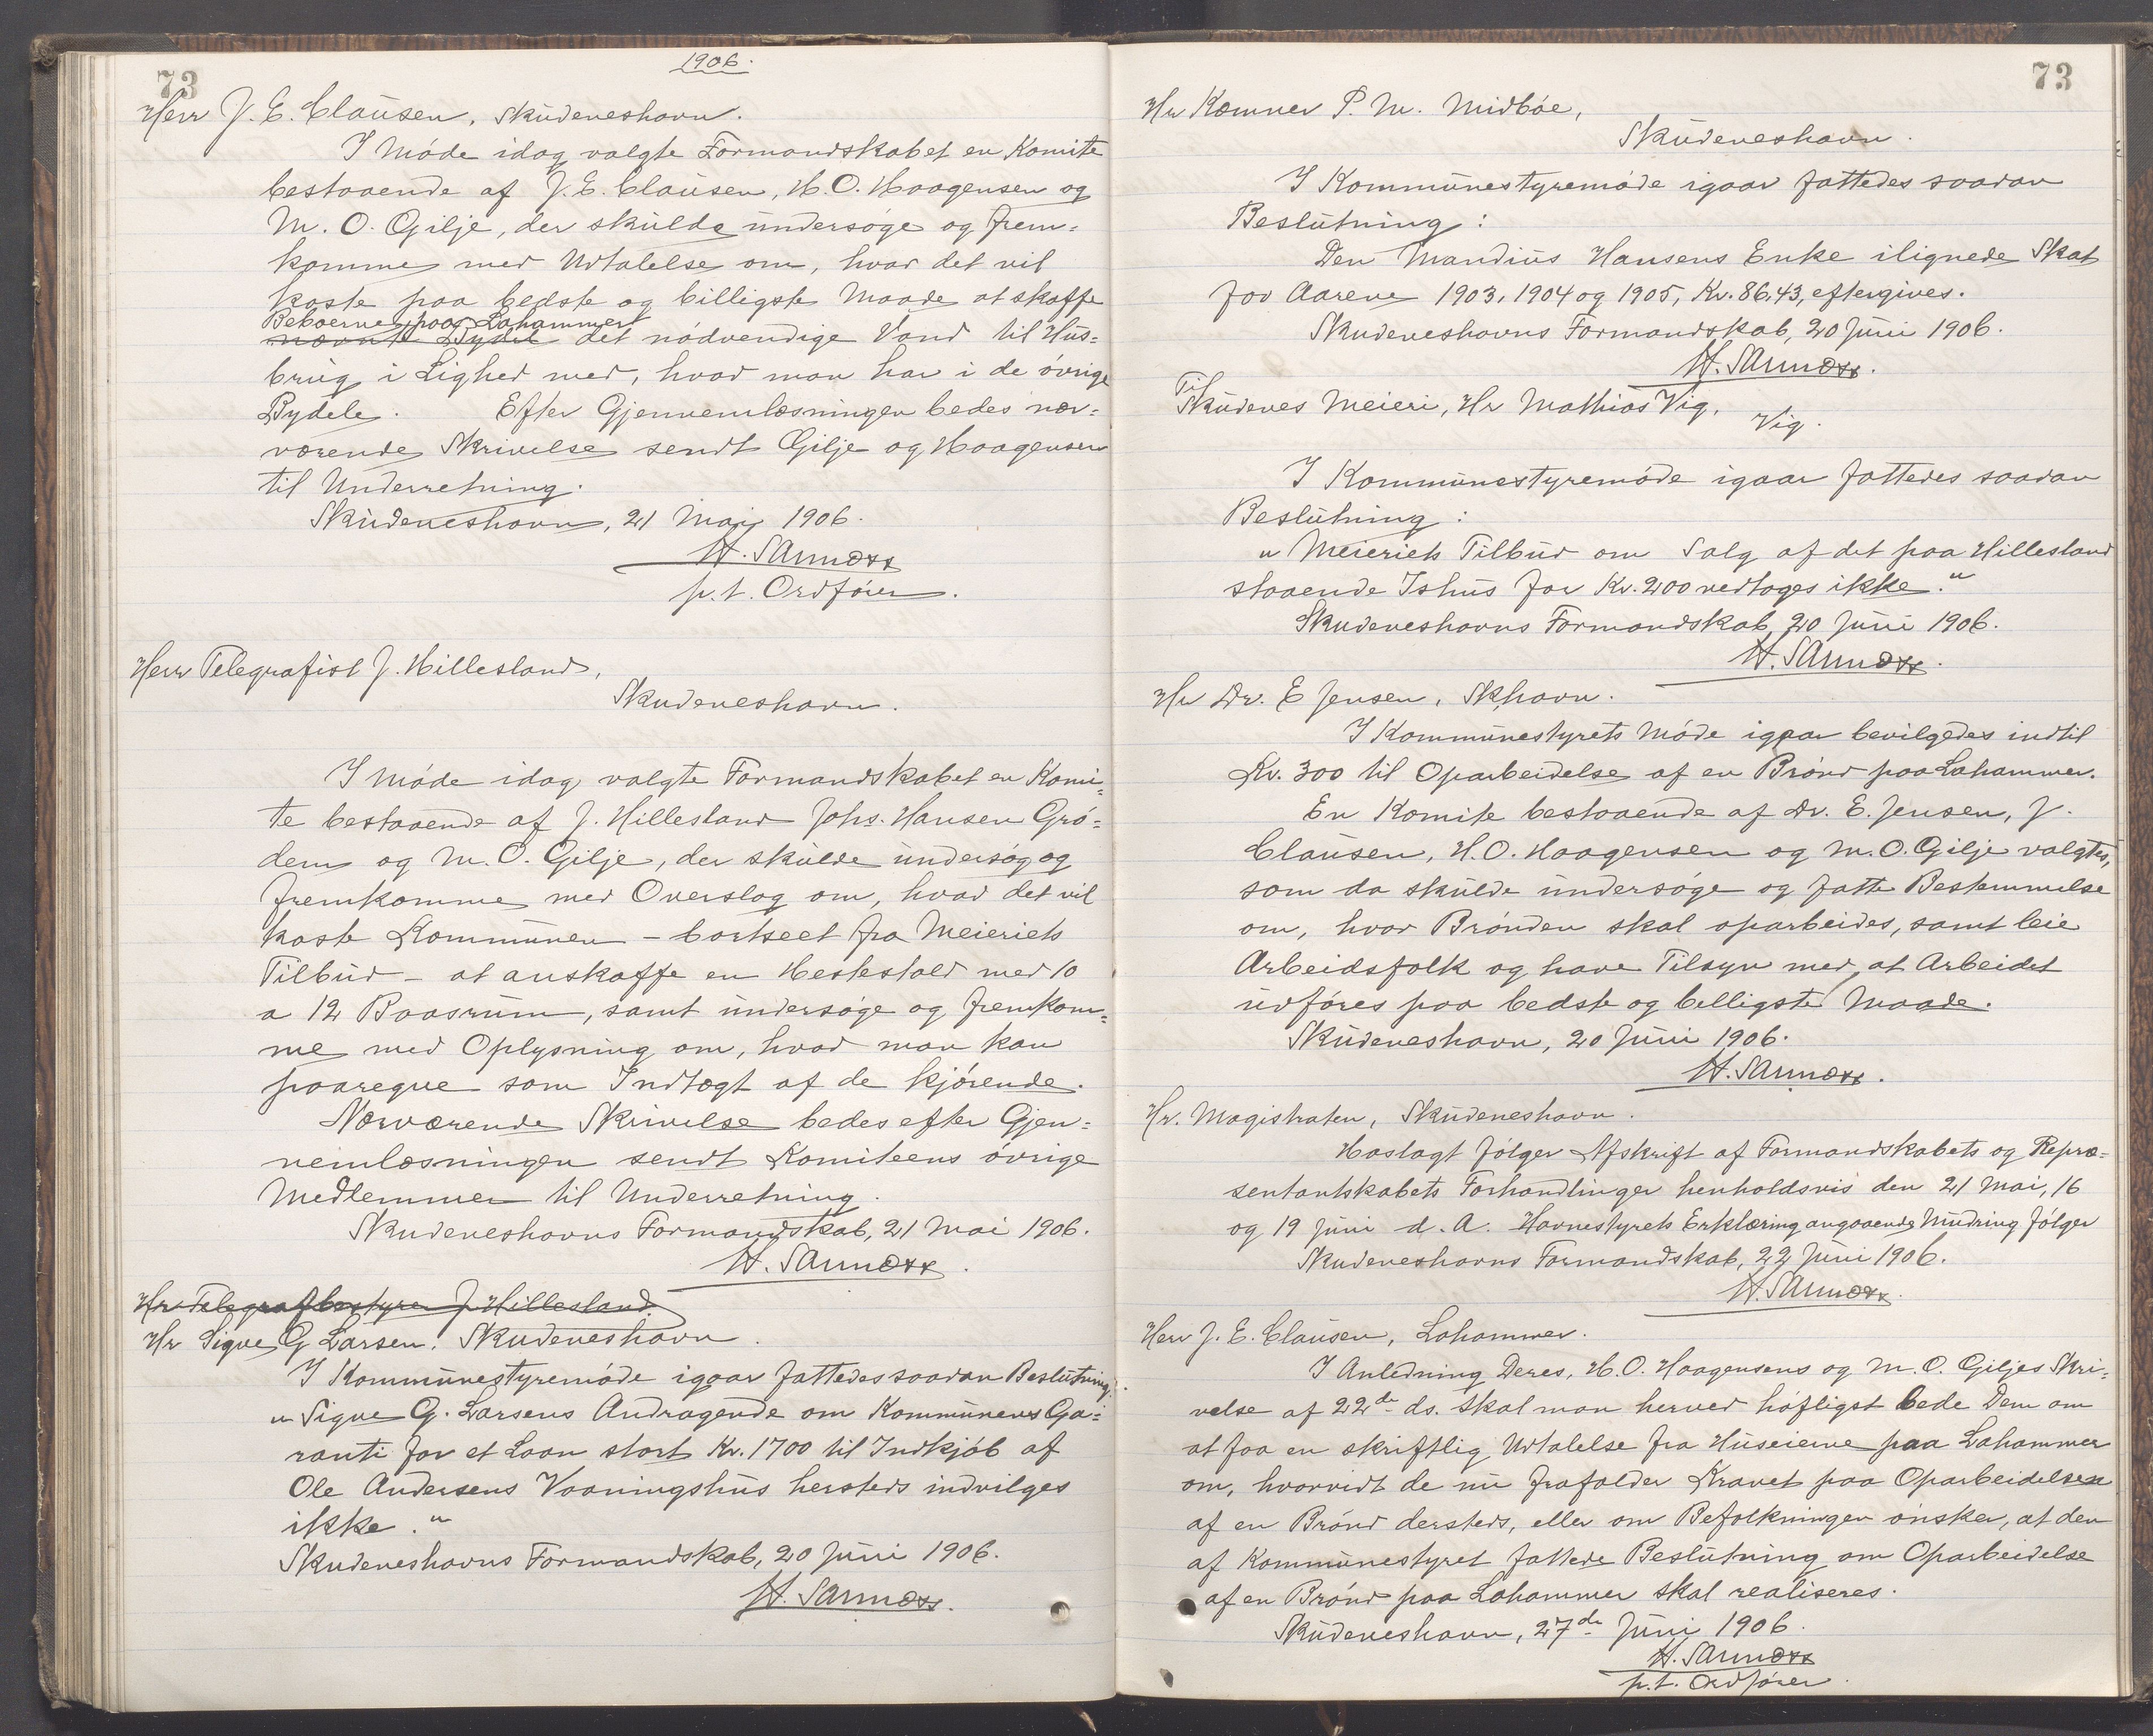 73
1906.
Herr J. E. Clausen, Skudeneshavn.
I Møde idag valgte Formandskabet en Komite
bestaaende af J. E. Clausen, H. O. Haagensen og
M. O. Gilje, der skulde undersøge og frem-
komme med Udtalelse om, hvad det vil
koste paa bedste og billigste Maade at skaffe
Beboerne paa Lahammer
nævnte Bydel det nødvendige Vand til Hus-
brug i Lighed med, hvad man har i de øvrige
Bydele. Efter Gjennemlæsningen bedes nær-
værende Skrivelse sendt Gilje og Haagensen
til Underretning.
Skudeneshavn, 21 Mai 1906.
p.t. Ordfører.
Herr Telegrafist J. Hillesland,
Skudeneshavn.
I Møde idag valgte Formandskabet en Komi-
te bestaaende af J. Hillesland Johs. Hansen Grø-
dem og M. O. Gilje, der skulde undersøg og
fremkomme med Overslag om, hvad det vil
koste Kommunen – bortseet fra Meieriets
Tilbud – at anskaffe en Hestestald med 10
a 12 Baasrum, samt undersøge og fremkom-
me med Oplysning om, hvad man kan
paaregne som Indtægt af de kjørende.
Nærværende Skrivelse bedes efter Gjen-
nemlæsningen sendt Komiteens øvrige
Medlemmer til Underretning.
Skudeneshavns Formandskab, 21 Mai 1906.
Hr Telegrafbestyrer J Hillesland.
Hr Sigve G Larsen, Skudeneshavn.
I Kommunestyremøde igaar fattedes saadan Beslutning:
"Sigve G. Larsens Andragende om Kommunens Ga-
ranti for et Laan stort Kr. 1700 til Indkjøb af
Ole Andersens Vaaningshus hersteds indvilges
ikke."
Skudeneshavns Formandskab, 20 Juni 1906.
73
Hr Kæmner P. M. Midbøe,
Skudeneshavn.
I Kommunestyremøde igaar fattedes saadan
Beslutning:
Den Mandius Hansens Enke ilignede Skat
for Aarene 1903, 1904 og 1905, Kr. 86,43, eftergives.
Skudeneshavns Formandskab, 20 Juni 1906.
Til
Skudenes Meieri, Hr Mathias Vig,
Vig.
I Kommunestyremøde igaar fattedes saadan
Beslutning:
"Meieriets Tilbud om Salg af det paa Hillesland
staaende Ishus for Kr. 200 vedtages ikke."
Skudeneshavns Formandskab, 20 Juni 1906.
Hr Dr. E Jensen, Skhavn.
I Kommunestyrets Møde igaar bevilgedes indtil
Kr. 300 til Oparbeidelse af en Brønd paa Lahammer.
En Komite bestaaende af Dr. E. Jensen, J.
Clausen, H. O. Haagensen og M. O. Gilje valgtes,
som da skulde undersøge og fatte Bestemmelse
om, hvor Brønden skal oparbeides, samt leie
Arbeidsfolk og have Tilsyn med, at Arbeidet
udføres paa bedste og billigste Maade.
Skudeneshavn, 20 Juni 1906.
Hr. Magistraten, Skudeneshavn.
Hoslagt følger Afskrift af Formandskabets og Repræ-
sentantskabets Forhandlinger henholdsvis den 21 Mai, 16
og 19 Juni d. A. Havnestyrets Erklæring angaaende Mudring følger
Skudeneshavns Formandskab, 22 Juni 1906.
Herr J. E. Clausen, Lahammer.
I Anledning Deres, H. O. Haagensens og M. O. Giljes Skri-
velse af 22de ds. skal man herved høfligst bede Dem om
at faa en skriftlig Udtalelse fra Huseierne paa Lahammer
om, hvorvidt de nu frafalder Kravet paa Oparbeidelsen
af en Brønd dersteds, eller om Befolkningen ønsker, at den
af Kommunestyret fattede Beslutning om Oparbeidelse
af en Brønd paa Lahammer skal realiseres.
Skudeneshavn, 27de Juni 1906.
p.t. Ordfører.